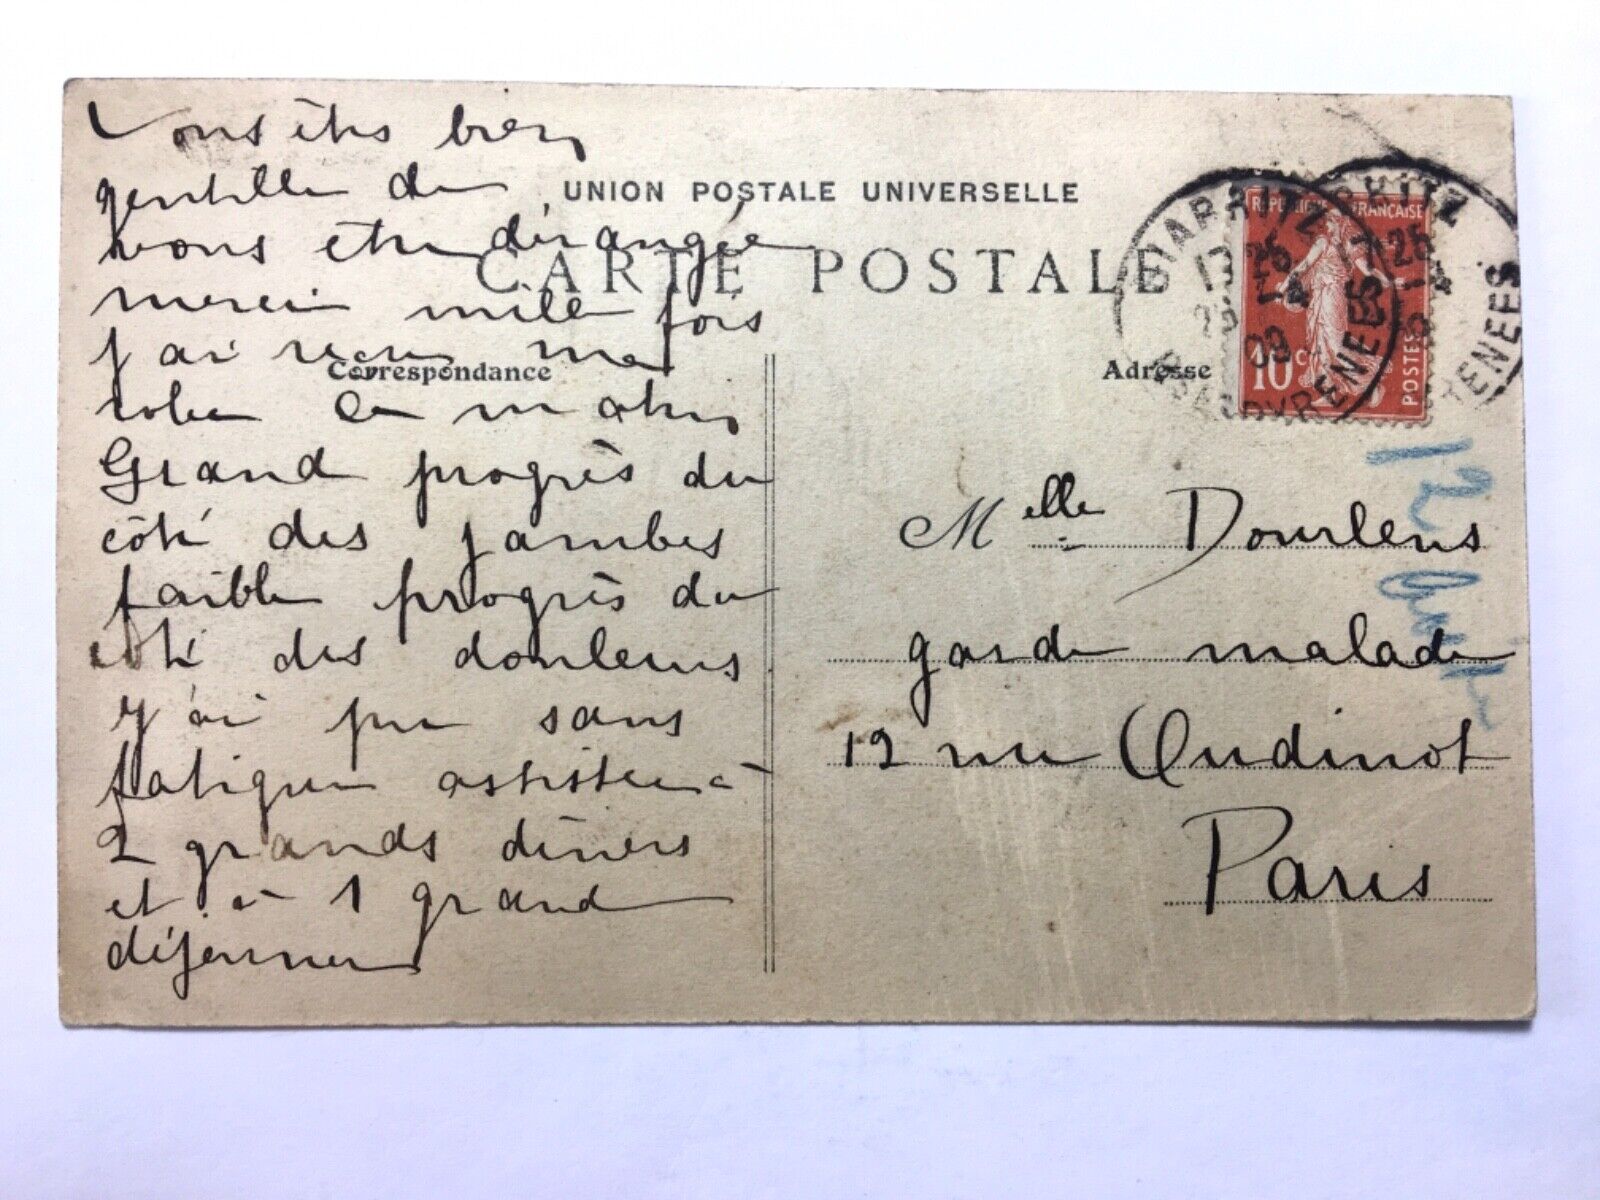 Vous êtes bien
gentille de
vous être dérangée
merci mille fois
j'ai reçu ma
robe ce matin
Grand progrès du
côté des jambes
faible progrès du
côté des douleurs
j'ai pu sans
fatigue assister à
2 grands dîners
et à 1 grand
déjeuner
UNION POSTALE UNIVERSELLE
CARTE POSTALE
Correspondance
Adresse
REPUBLIQUE FRANÇAISE
10c
POSTES
BIARRITZ
7 25
25-4
09
BSES PYRENEES
BIARRITZ
7 25
PYRENEES
12
Melle Dourlens
garde malade
12 rue Oudinot
Paris